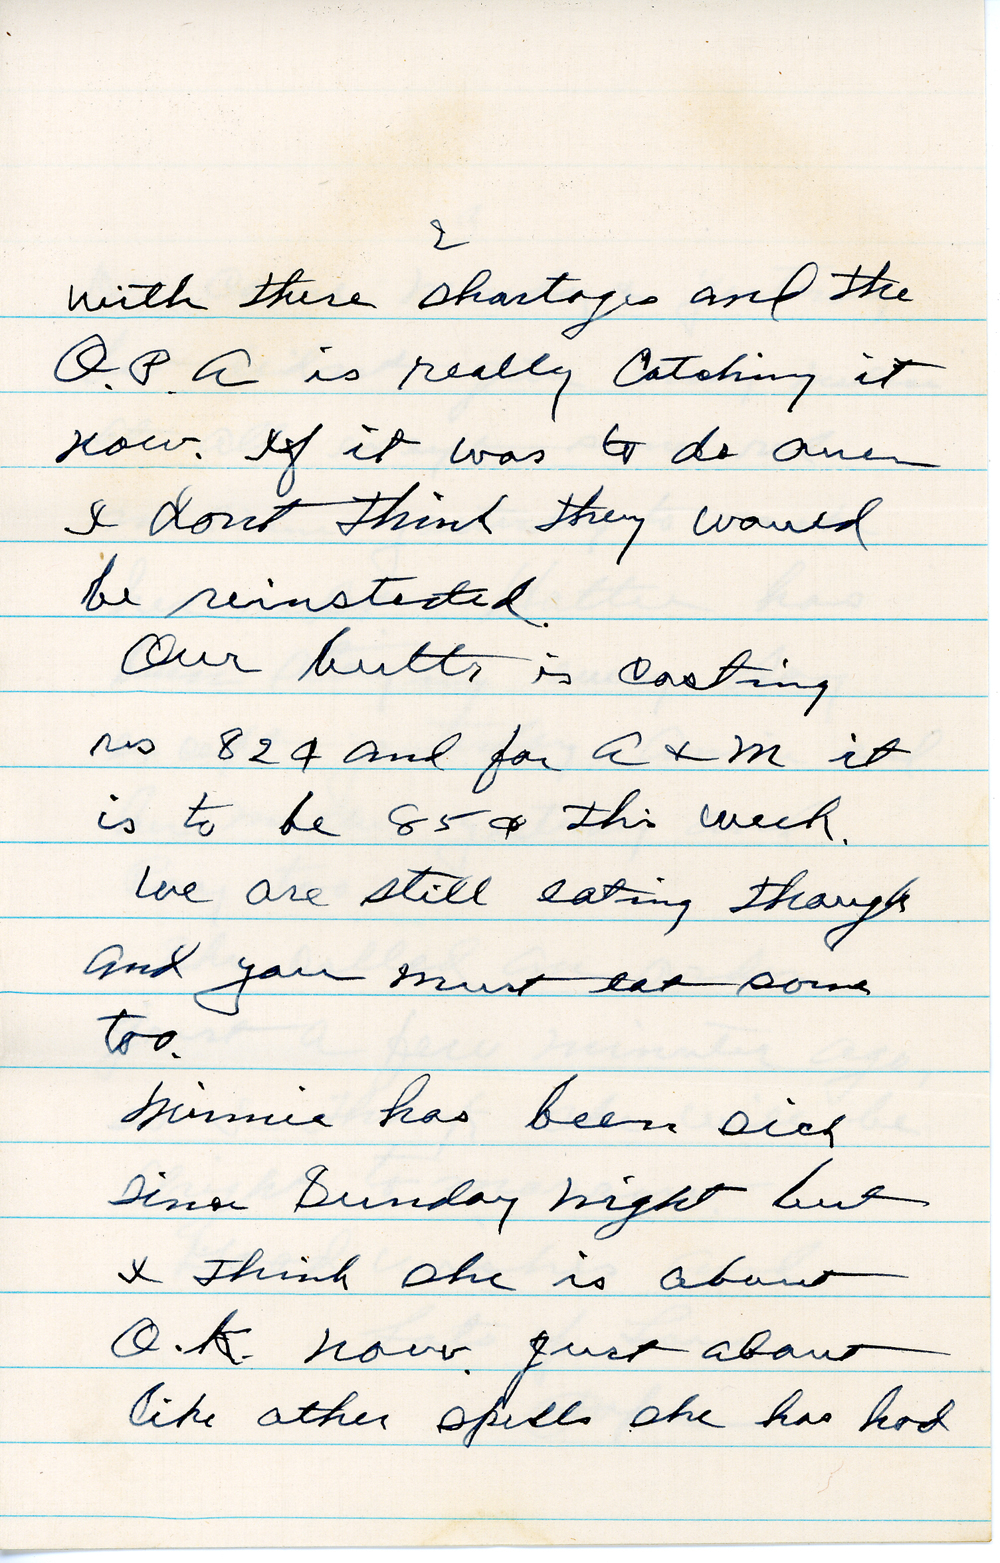 2
with these shortages and the
O.P.A is really catching it
now. If it was to do over
I dont think they would
be reinstated.
Our butter is costing
us 82¢ and for A & M it
is to be 85¢ this week.
We are still eating though
and you must eat some
too.
Minnie has been sick
since Sunday night but
I think she is about
O.K. now. Just about
like other spells she has had